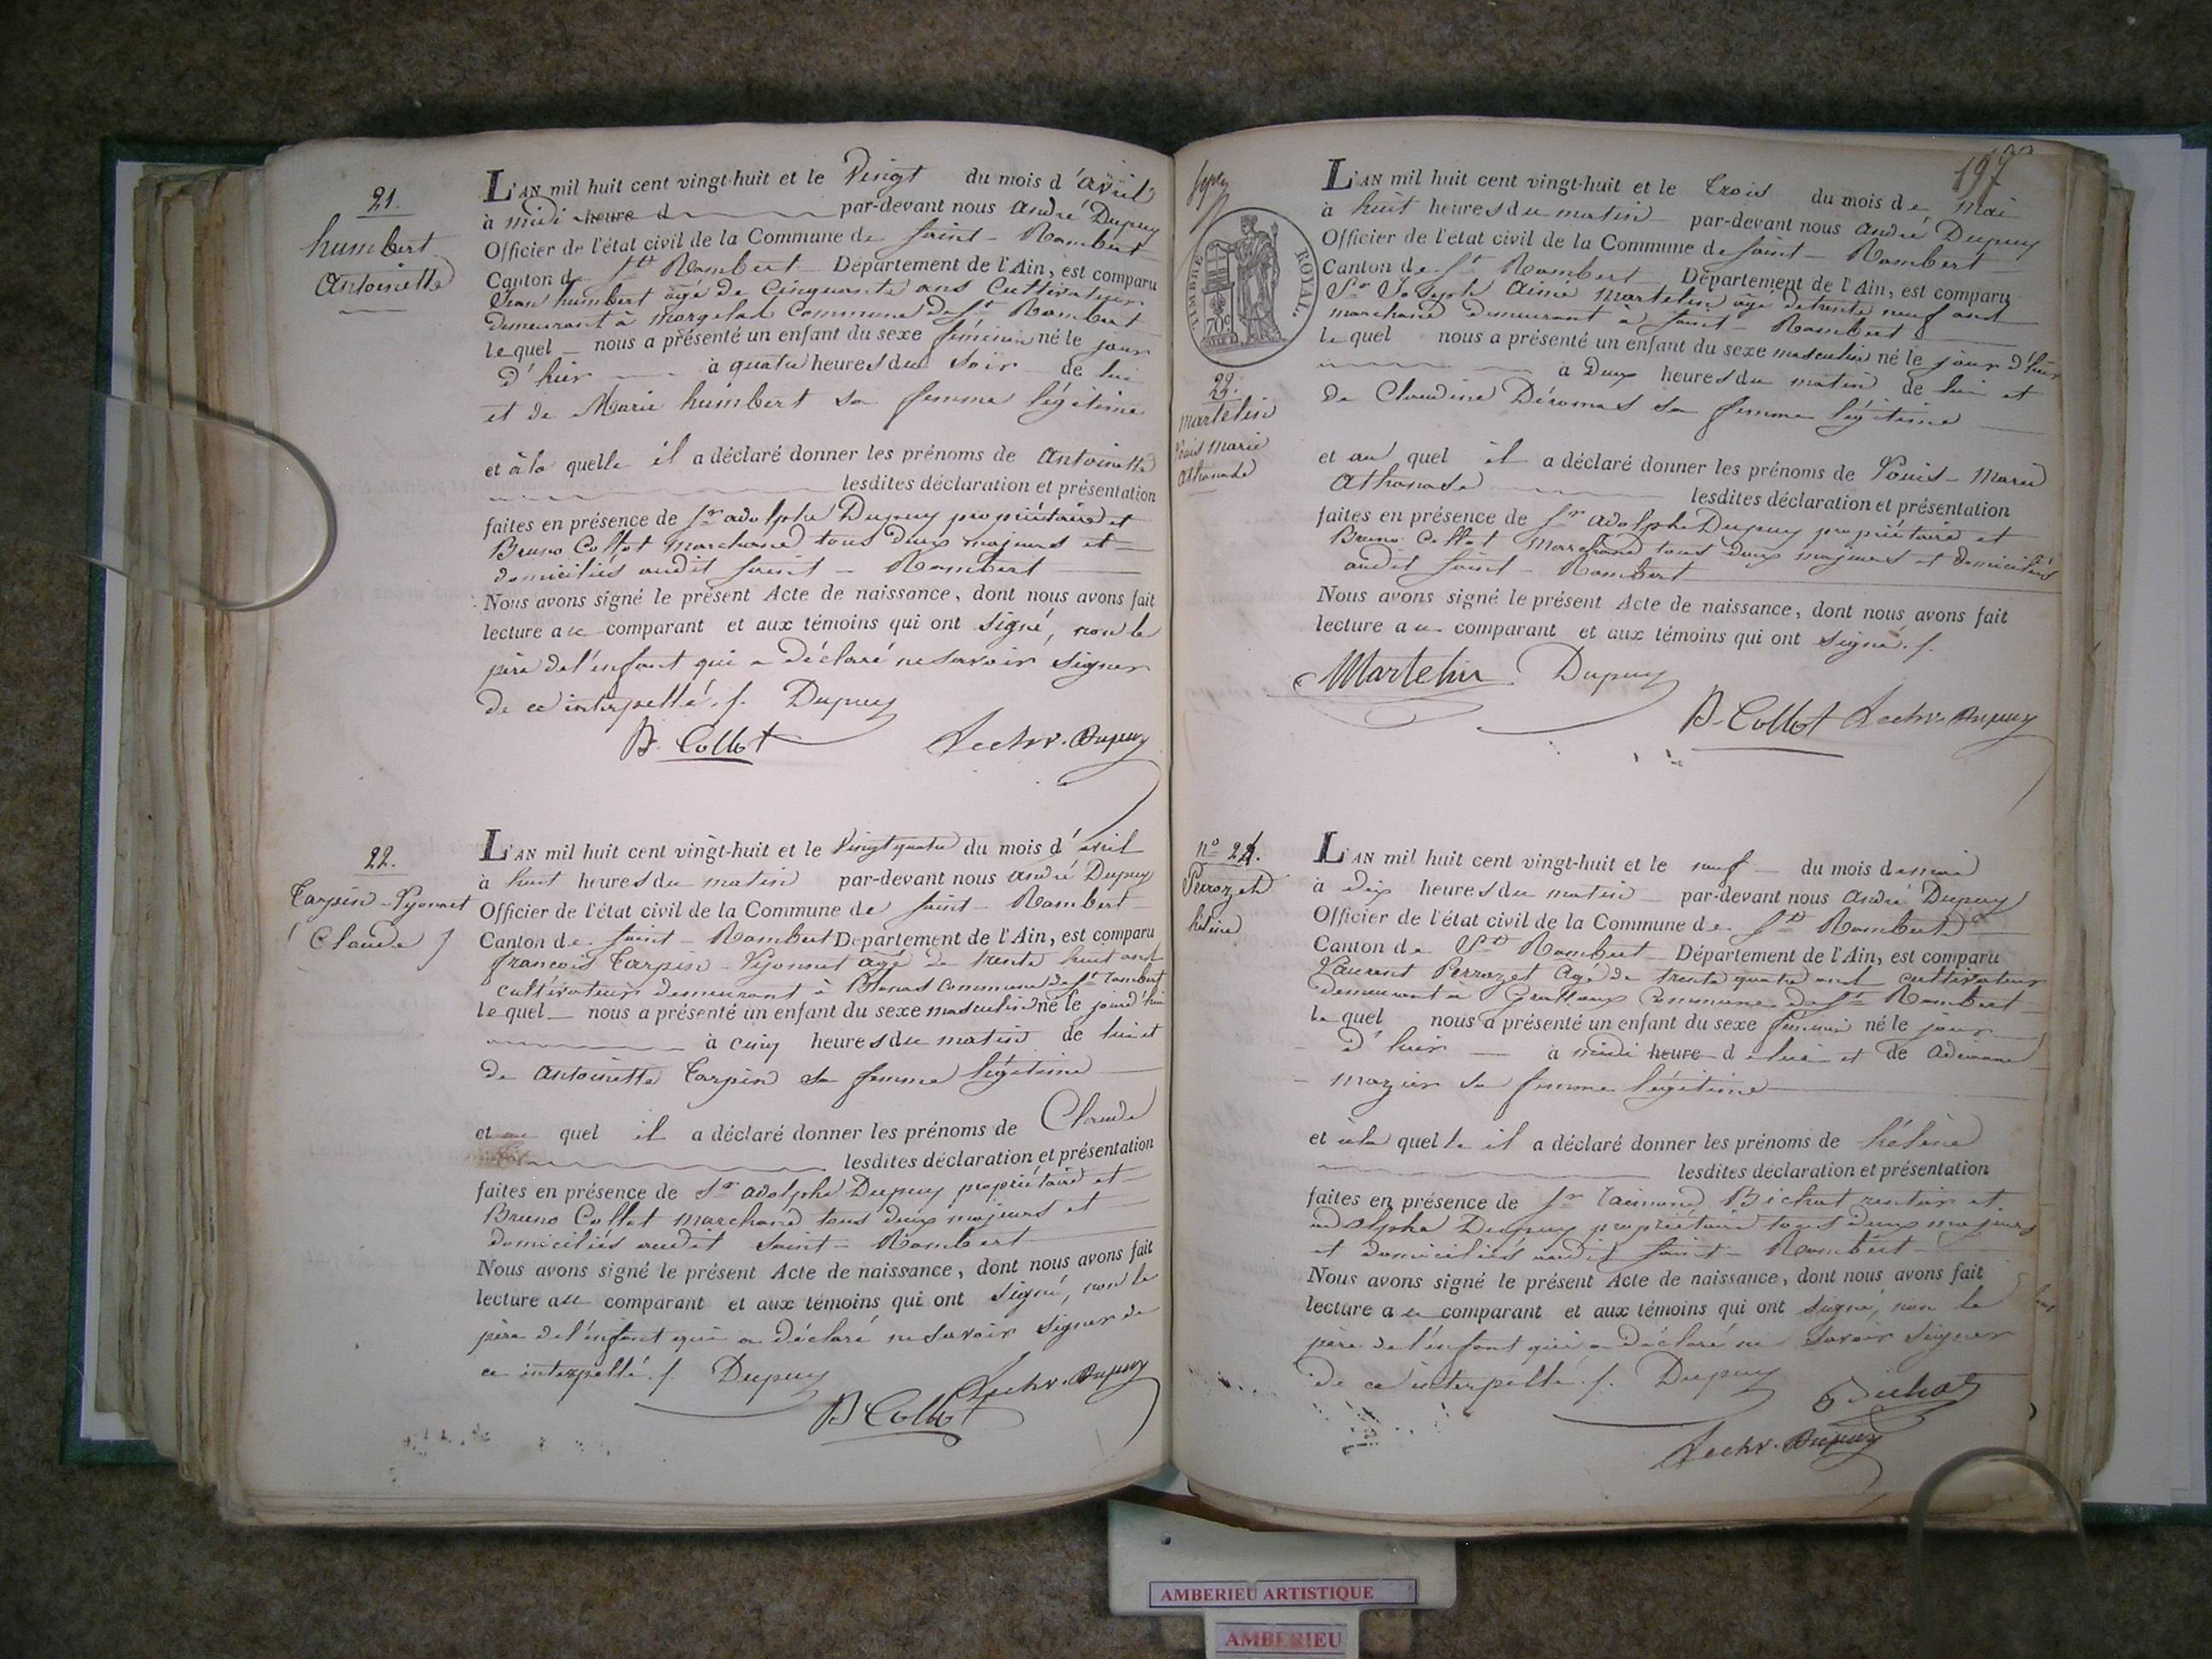 21.
humbert
Antoinette
L'AN mil huit cent vingt-huit et le Vingt du mois d'avril
à midi heure d par-devant nous andré Dupuy
Officier de l'état civil de la Commune de Saint-Rambert
Canton de St Rambert Département de l'Ain, est comparu
Jean humbert agé de Cinquante ans Cultivateur
demeurant à morgelas Commune de St Rambert
lequel nous a présenté un enfant du sexe féminin né le jour
d'hier à quatre heures du soir de lui
et de Marie humbert sa femme légitime
et à la quelle il a déclaré donner les prénoms de Antoinette
lesdites déclaration et présentation
faites en présence de Sr adolphe Dupuy propriétaire et
Bruno Collot marchand tous deux majeurs et
domiciliés audit Saint-Rambert
Nous avons signé le présent Acte de naissance, dont nous avons fait
lecture au comparant et aux témoins qui ont signé, non le
père de l'enfant qui a déclaré ne savoir signer
de ce interpellé ./. Dupuy
B. Collot Dupuy
22.
Tarpin-Vyonnet
Claude
L'AN mil huit cent vingt-huit et le Vingt quatre du mois d'avril
à huit heures du matin par-devant nous andré Dupuy
Officier de l'état civil de la Commune de Saint-Rambert
Canton de Saint-Rambert Département de l'Ain, est comparu
françois Tarpin-Vyonnet agé de trente huit ans
cultivateur demeurant à Blanas Commune de St rambert
lequel nous a présenté un enfant du sexe masculin né le jour d'hui
à cinq heures du matin de lui et
de Antoinette Tarpin sa femme légitime
et au quel il a déclaré donner les prénoms de Claude
lesdites déclaration et présentation
faites en présence de Sr adolphe Dupuy propriétaire et
Bruno Collot marchand tous deux majeurs et
domiciliés audit Saint-Rambert
Nous avons signé le présent Acte de naissance, dont nous avons fait
lecture au comparant et aux témoins qui ont signé, non le
père de l'enfant qui a déclaré ne savoir signer de
ce interpellé ./. Dupuy
B Collot Dupuy
197
TIMBRE ROYAL
70c
23.
martelin
Louis marie
Athanase
L'AN mil huit cent vingt-huit et le trois du mois de mai
à huit heures du matin par-devant nous andré Dupuy
Officier de l'état civil de la Commune de Saint-Rambert
Canton de St Rambert Département de l'Ain, est comparu
Sr Joseph Aimé martelin âgé de trente neuf ans
marchand demeurant à Saint-Rambert
lequel nous a présenté un enfant du sexe masculin né le jour d'hier
à Deux heures du matin de lui et
de Claudine Déromas sa femme légitime
et au quel il a déclaré donner les prénoms de Louis-Marie
Athanase lesdites déclaration et présentation
faites en présence de Sr adolphe Dupuy propriétaire et
Bruno Collot marchand tous deux majeurs et domiciliés
audit Saint-Rambert
Nous avons signé le présent Acte de naissance, dont nous avons fait
lecture au comparant et aux témoins qui ont signé ./.
Martelin Dupuy
B. Collot Dupuy
no 24.
Perrozet
héleine
L'AN mil huit cent vingt-huit et le neuf du mois de mai
à dix heures du matin par-devant nous andré Dupuy
Officier de l'état civil de la Commune de St Rambert
Canton de St Rambert Département de l'Ain, est comparu
Laurent Perrozet agé de trente quatre ans cultivateur
demeurant à Grattoux Commune de St Rambert
lequel nous a présenté un enfant du sexe féminin né le jour
d'hier à midi heure de lui et de
mazuir sa femme légitime
et à la quelle il a déclaré donner les prénoms de héleine
lesdites déclaration et présentation
faites en présence de Sr Raimond Bichat rentier et
adolphe Dupuy propriétaire tous deux majeurs
et domiciliés audit Saint-Rambert
Nous avons signé le présent Acte de naissance, dont nous avons fait
lecture au comparant et aux témoins qui ont signé, non le
père de l'enfant qui a déclaré ne savoir signer
de ce interpellé ./. Dupuy Bichat
Dupuy
AMBERIEU ARTISTIQUE
AMBERIEU